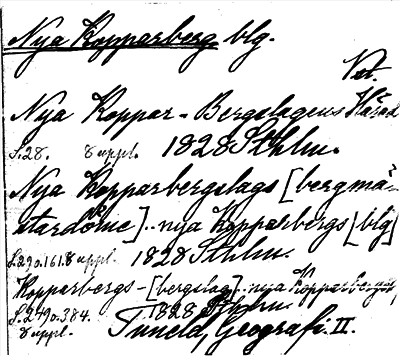 Nya Kopparberg blg.
Vst.
Nya Koppar-Bergslagens Härad
S. 28. 8 uppl. 1828 Sthlm.
Nya Kopparbergslags [bergmä-
stardöme]..nya Kopparbergs [blg]
S. 290.161. 8 uppl. 1828 Sthlm.
Kopparbergs-[bergslag]..nya Kopparbergs
S. 290.384. 1828 Sthlm.
8 uppl. Tuneld, Geografi. II.